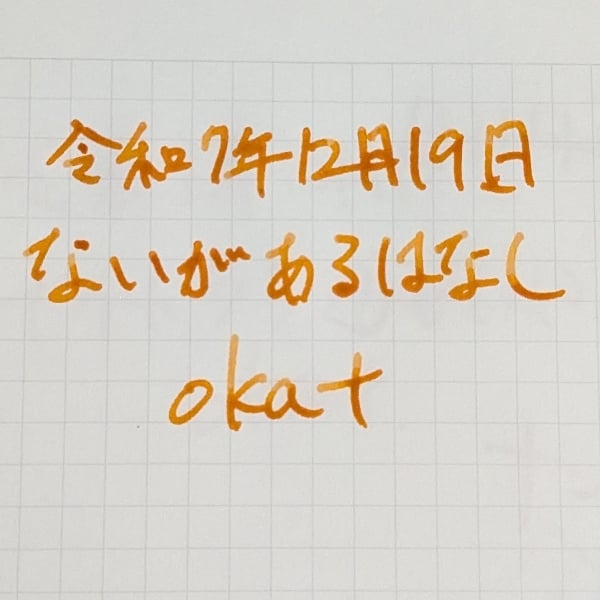 令和7年12月19日
ないがあるはなし
okat